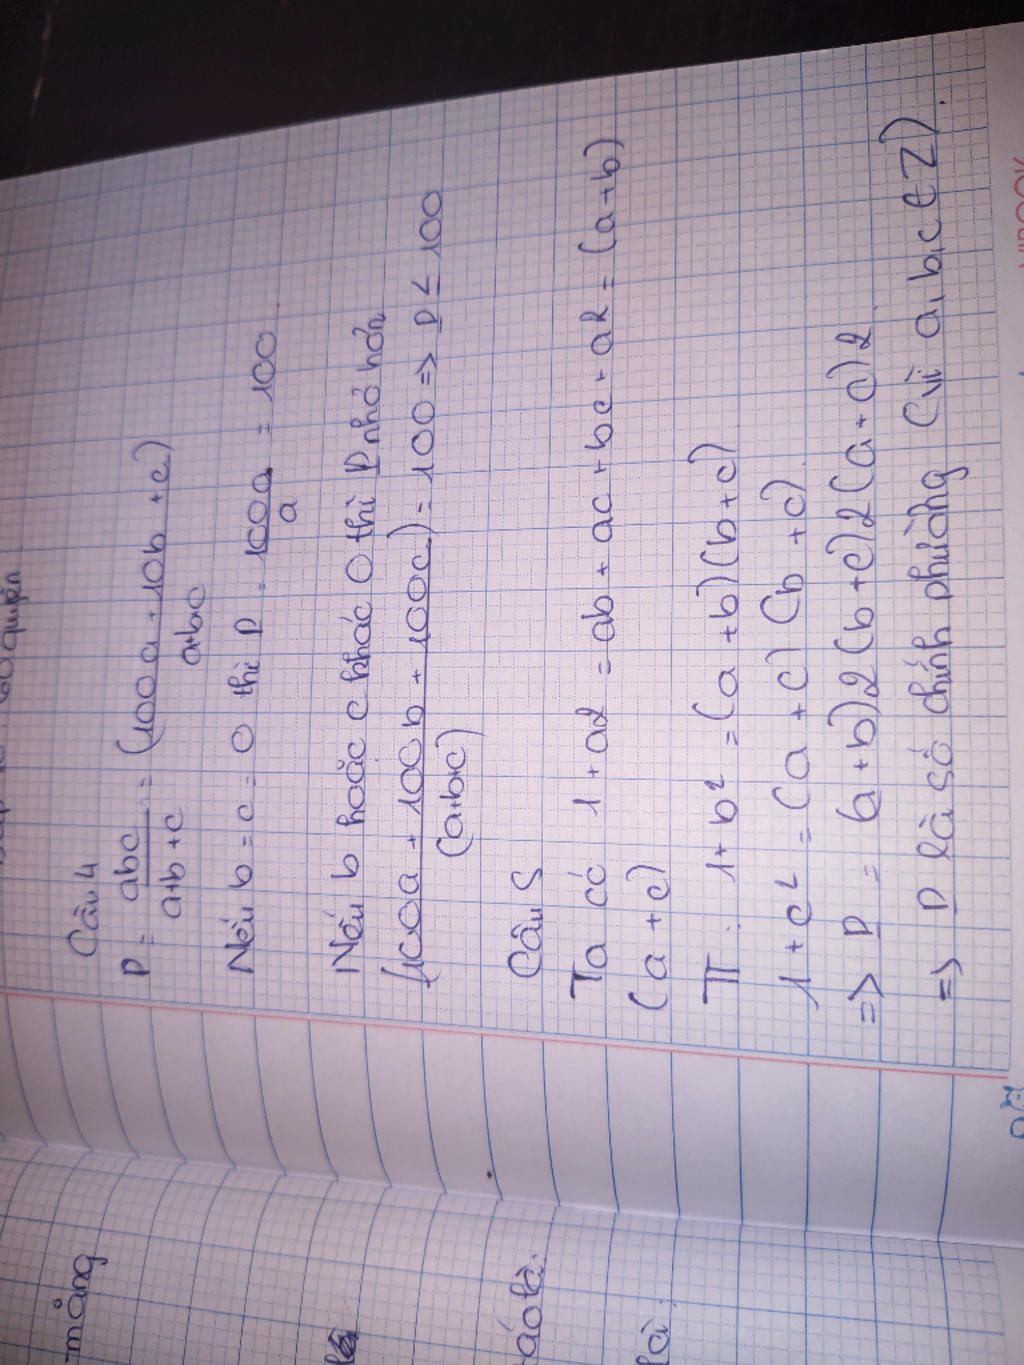 quyển
Câu 4
P = abc / a+b+c = (100a + 10b + c) / a+b+c
Nếu b = c = 0 thì P = 100a / a = 100
Nếu b hoặc c khác 0 thì P nhỏ hơn
(100a + 100b + 100c) / (a+b+c) = 100 => P ≤ 100
Câu 5
Ta có 1 + a2 = ab + ac + bc + a2 = (a+b)
(a + c)
TT : 1 + b² = (a + b) (b + c)
1 + c² = (a + c) (b + c)
=> P = (a + b)2 (b + c)2 (a + c)2
=> P là số chính phương (vì a, b, c ∈ Z).
mảng
là.
VIBOOK